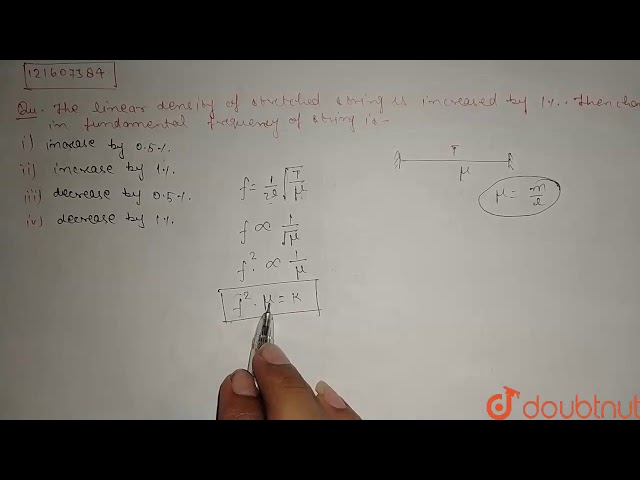 121607384
Qu. The linear density of stretched string is increased by 1%. Then
in fundamental frequency of string is -
i) increase by 0.5%.
ii) increase by 1%.
iii) decrease by 0.5%.
iv) decrease by 1%.
f = 1/2l √T/μ
f ∝ 1/√μ
f² ∝ 1/μ
f² . μ = K
T
μ
μ = m/l
doubtnut